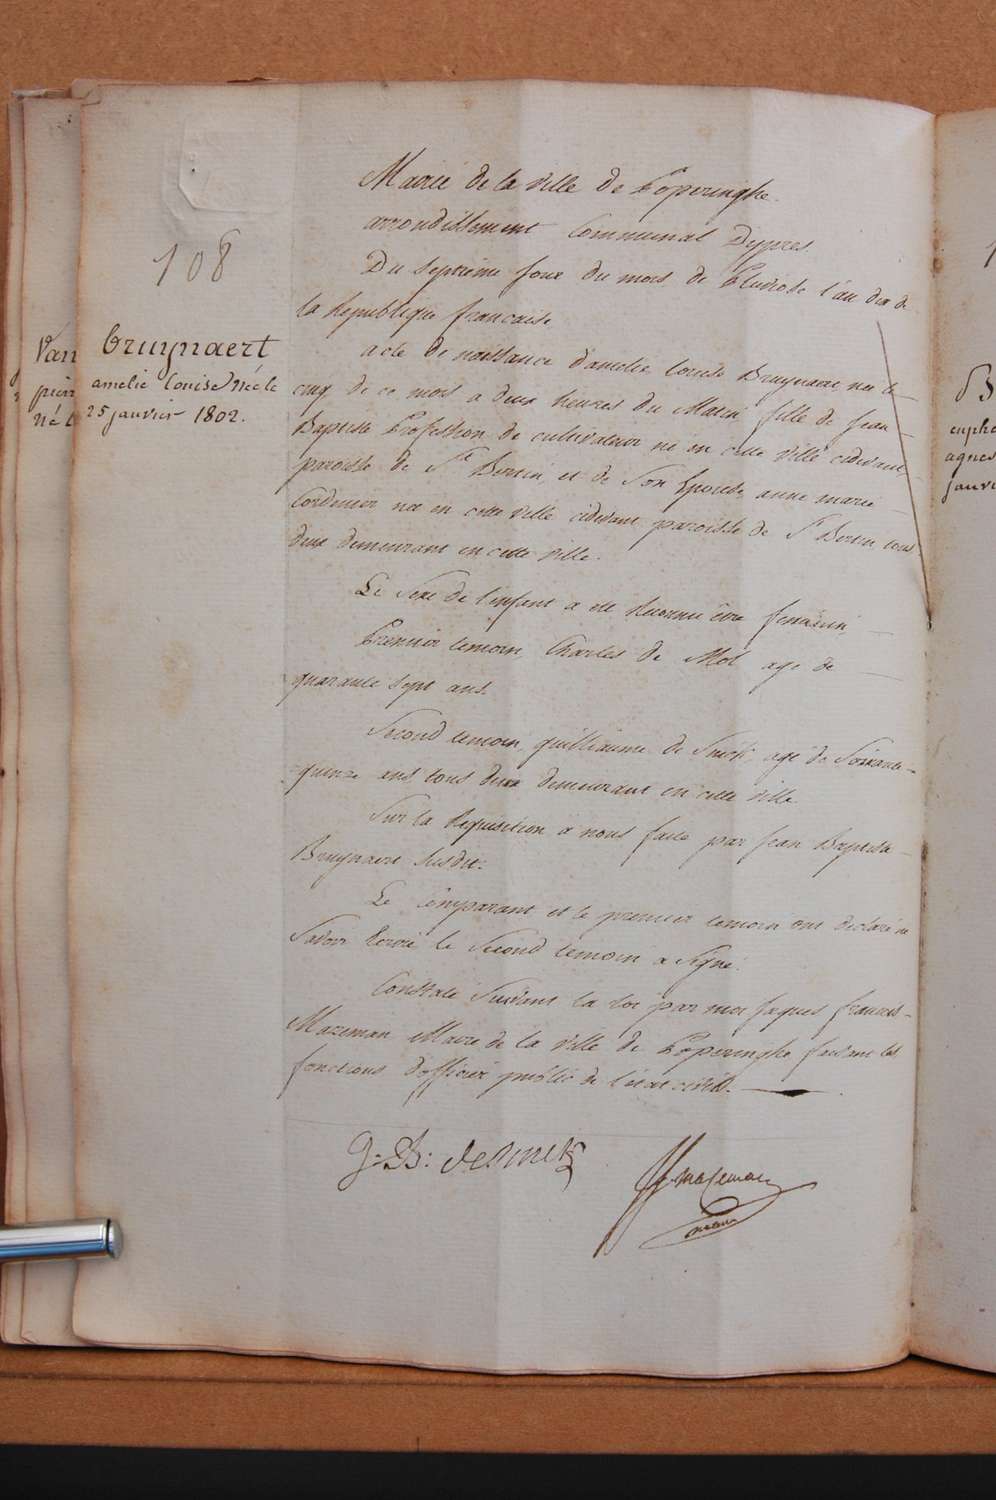 Mairie de la ville de Poperinghe
arrondissement Communal Dypres.
108
Du Septieme Jour du mois de Pluviose l'an dix de
la Republique francaise
Bruynaert
amelie louise Née le
25 janvier 1802.
acte de naissance d'amelie louise Bruynaert, née le
cinq de ce mois a deux heures du Matin fille de Jean
Baptiste Profession de cultivateur né en cette ville cidevant
paroisse de St Bertin, et de Son Epouse anne marie
Cordenier née en cette ville cidevant paroisse de St Bertin, tous
deux demeurant en cette ville.
Le Sexe de l'enfant a eté Reconnu être feminin,
Premier temoin, Charles de Mol age de
quarante Sept ans.
Second temoin, guilliaume de Smidt, age de Soixante
quinze ans, tous deux demeurant en cette ville
Sur la Requisition a nous faite par Jean Baptiste
Bruynaert Susdit.
Le Comparant et le premier temoin ont declaré ne
Savoir Ecrire le Second temoin a Signé.
Constaté Suivant la loi par moi Jaques francois
Mazeman Maire de la ville de Poperinghe faisant les
fonctions d'officier public de l'état civil.
G: B: deSmidt
JF mazeman
maire
Van
Né l
enphe
agnes
janvi